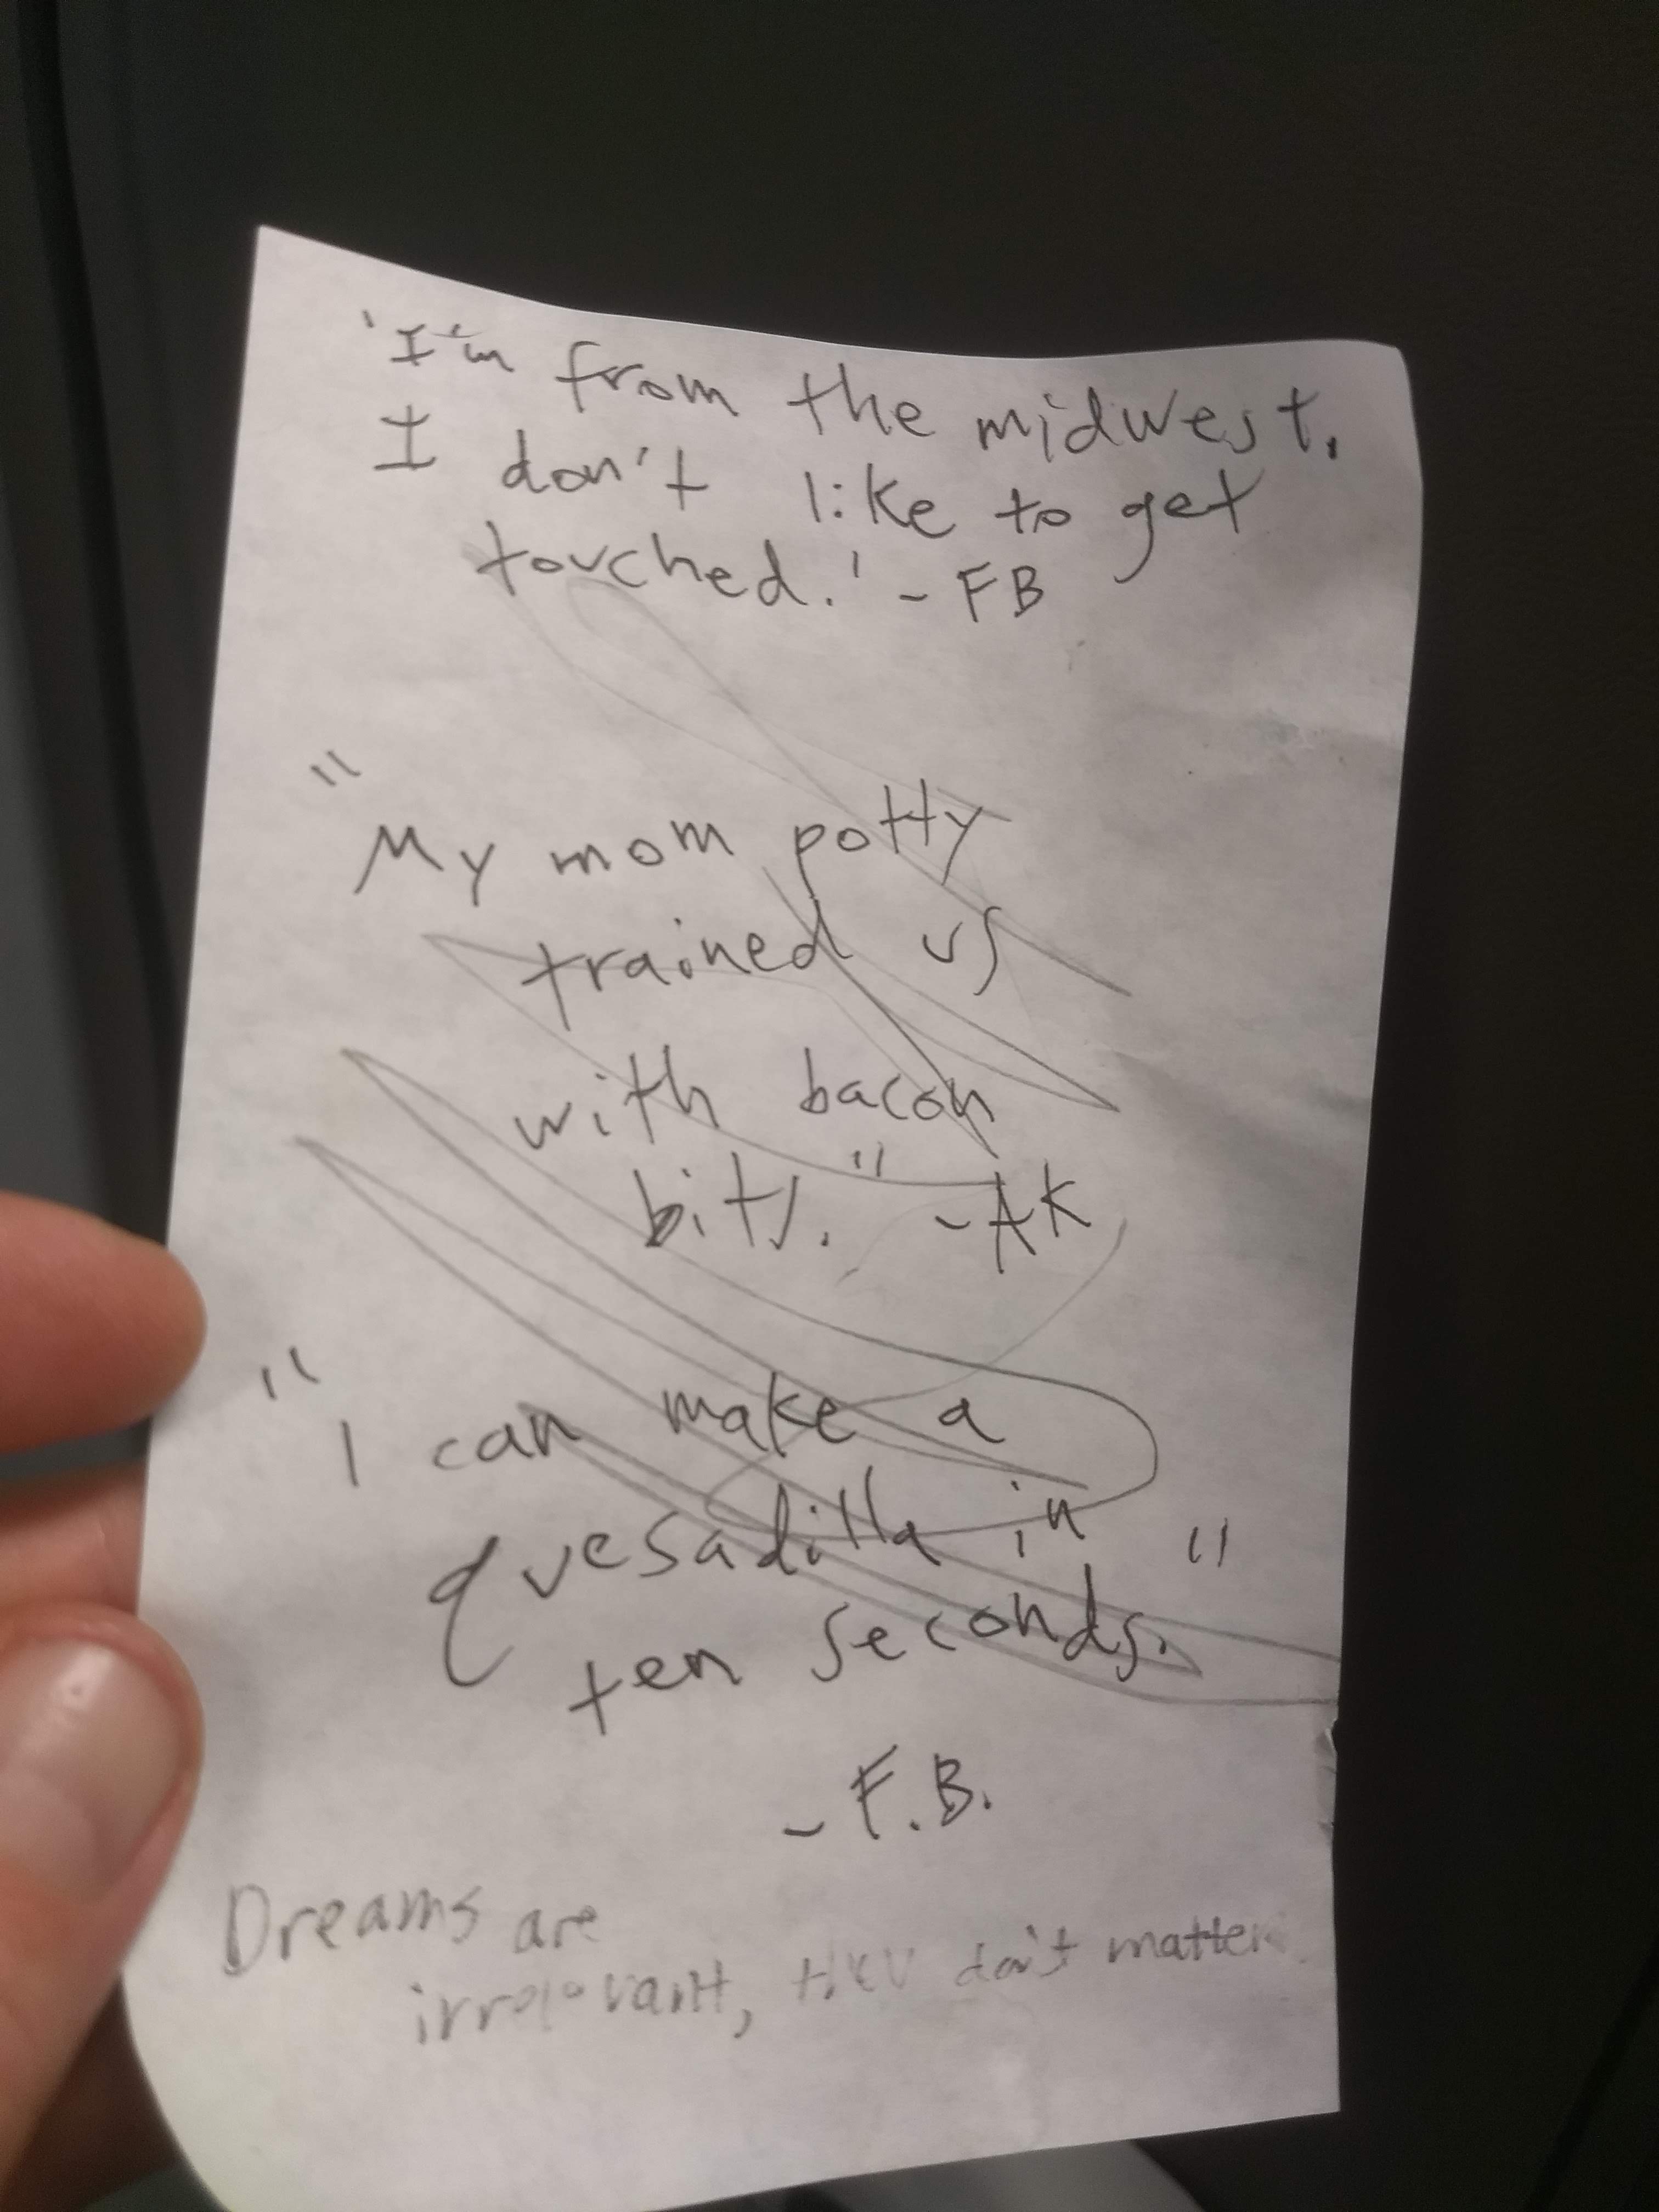 'I'm from the midwest.
I don't like to get
touched.' - FB
"My mom potty
trained us
with bacon
bits." - AK
"I can make a
quesadilla in
ten seconds."
- F.B.
Dreams are
irrelevant, they don't matter.